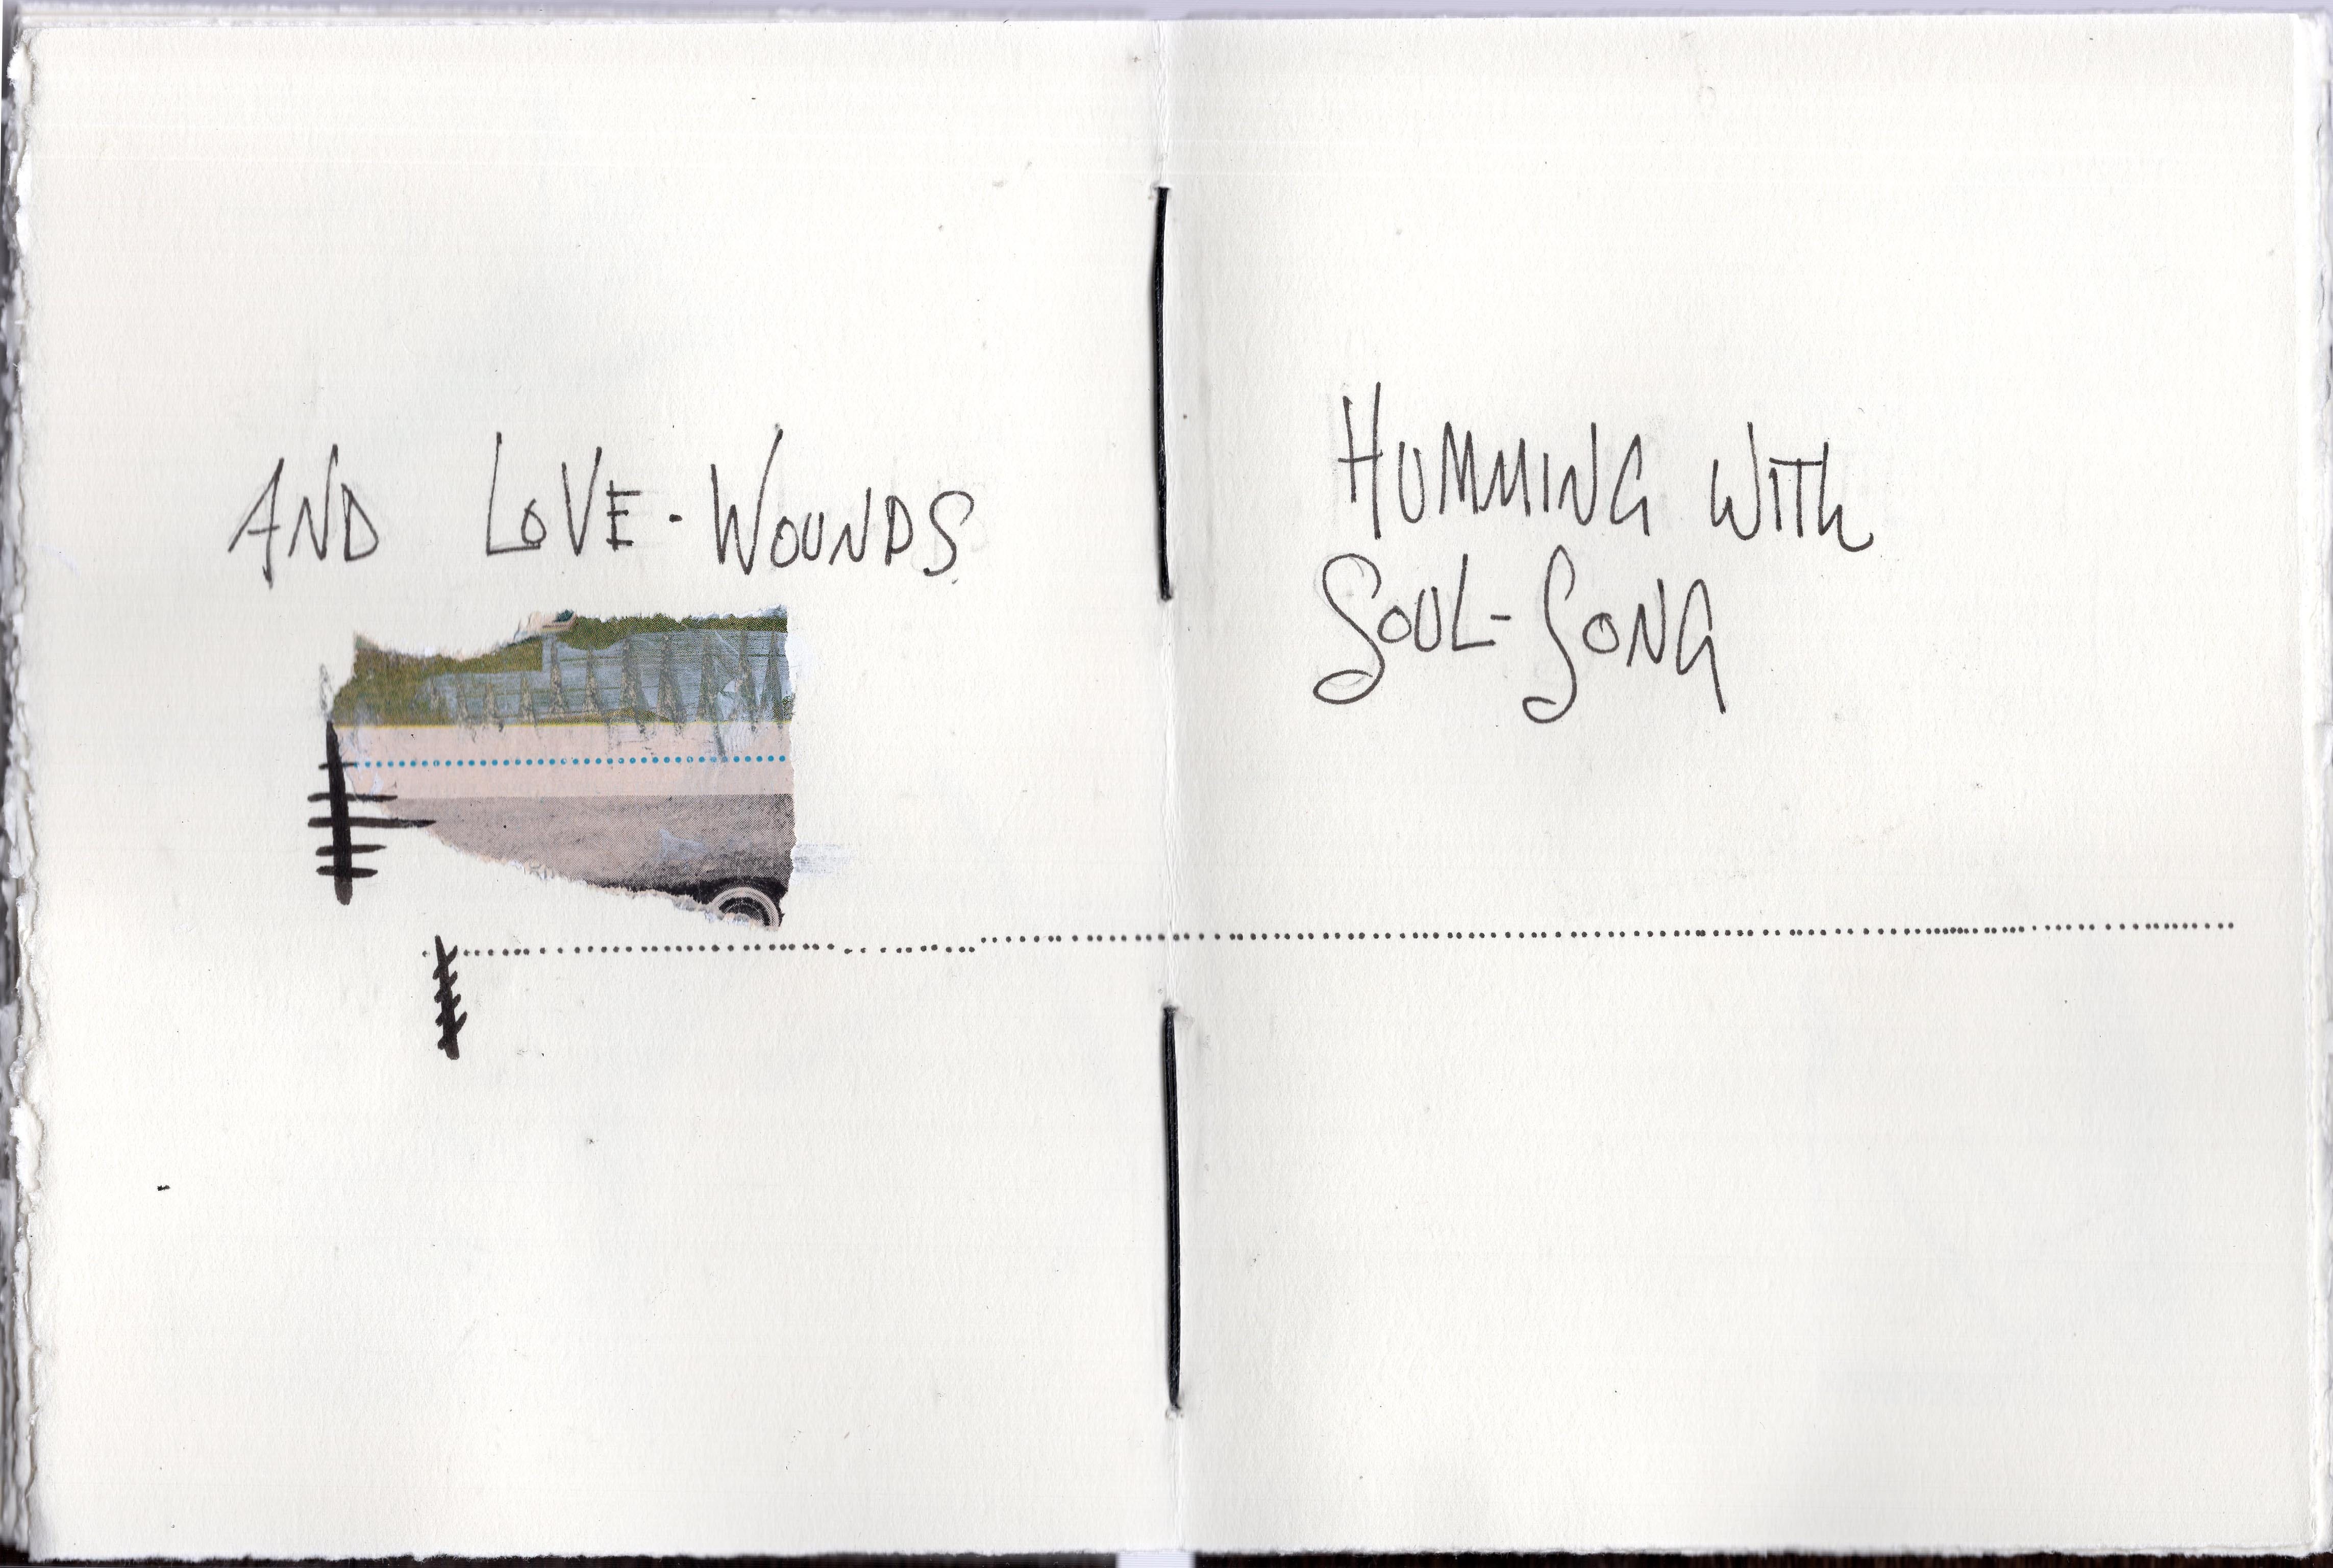 AND LOVE-WOUNDS
HUMMING WITH
SOUL-SONG